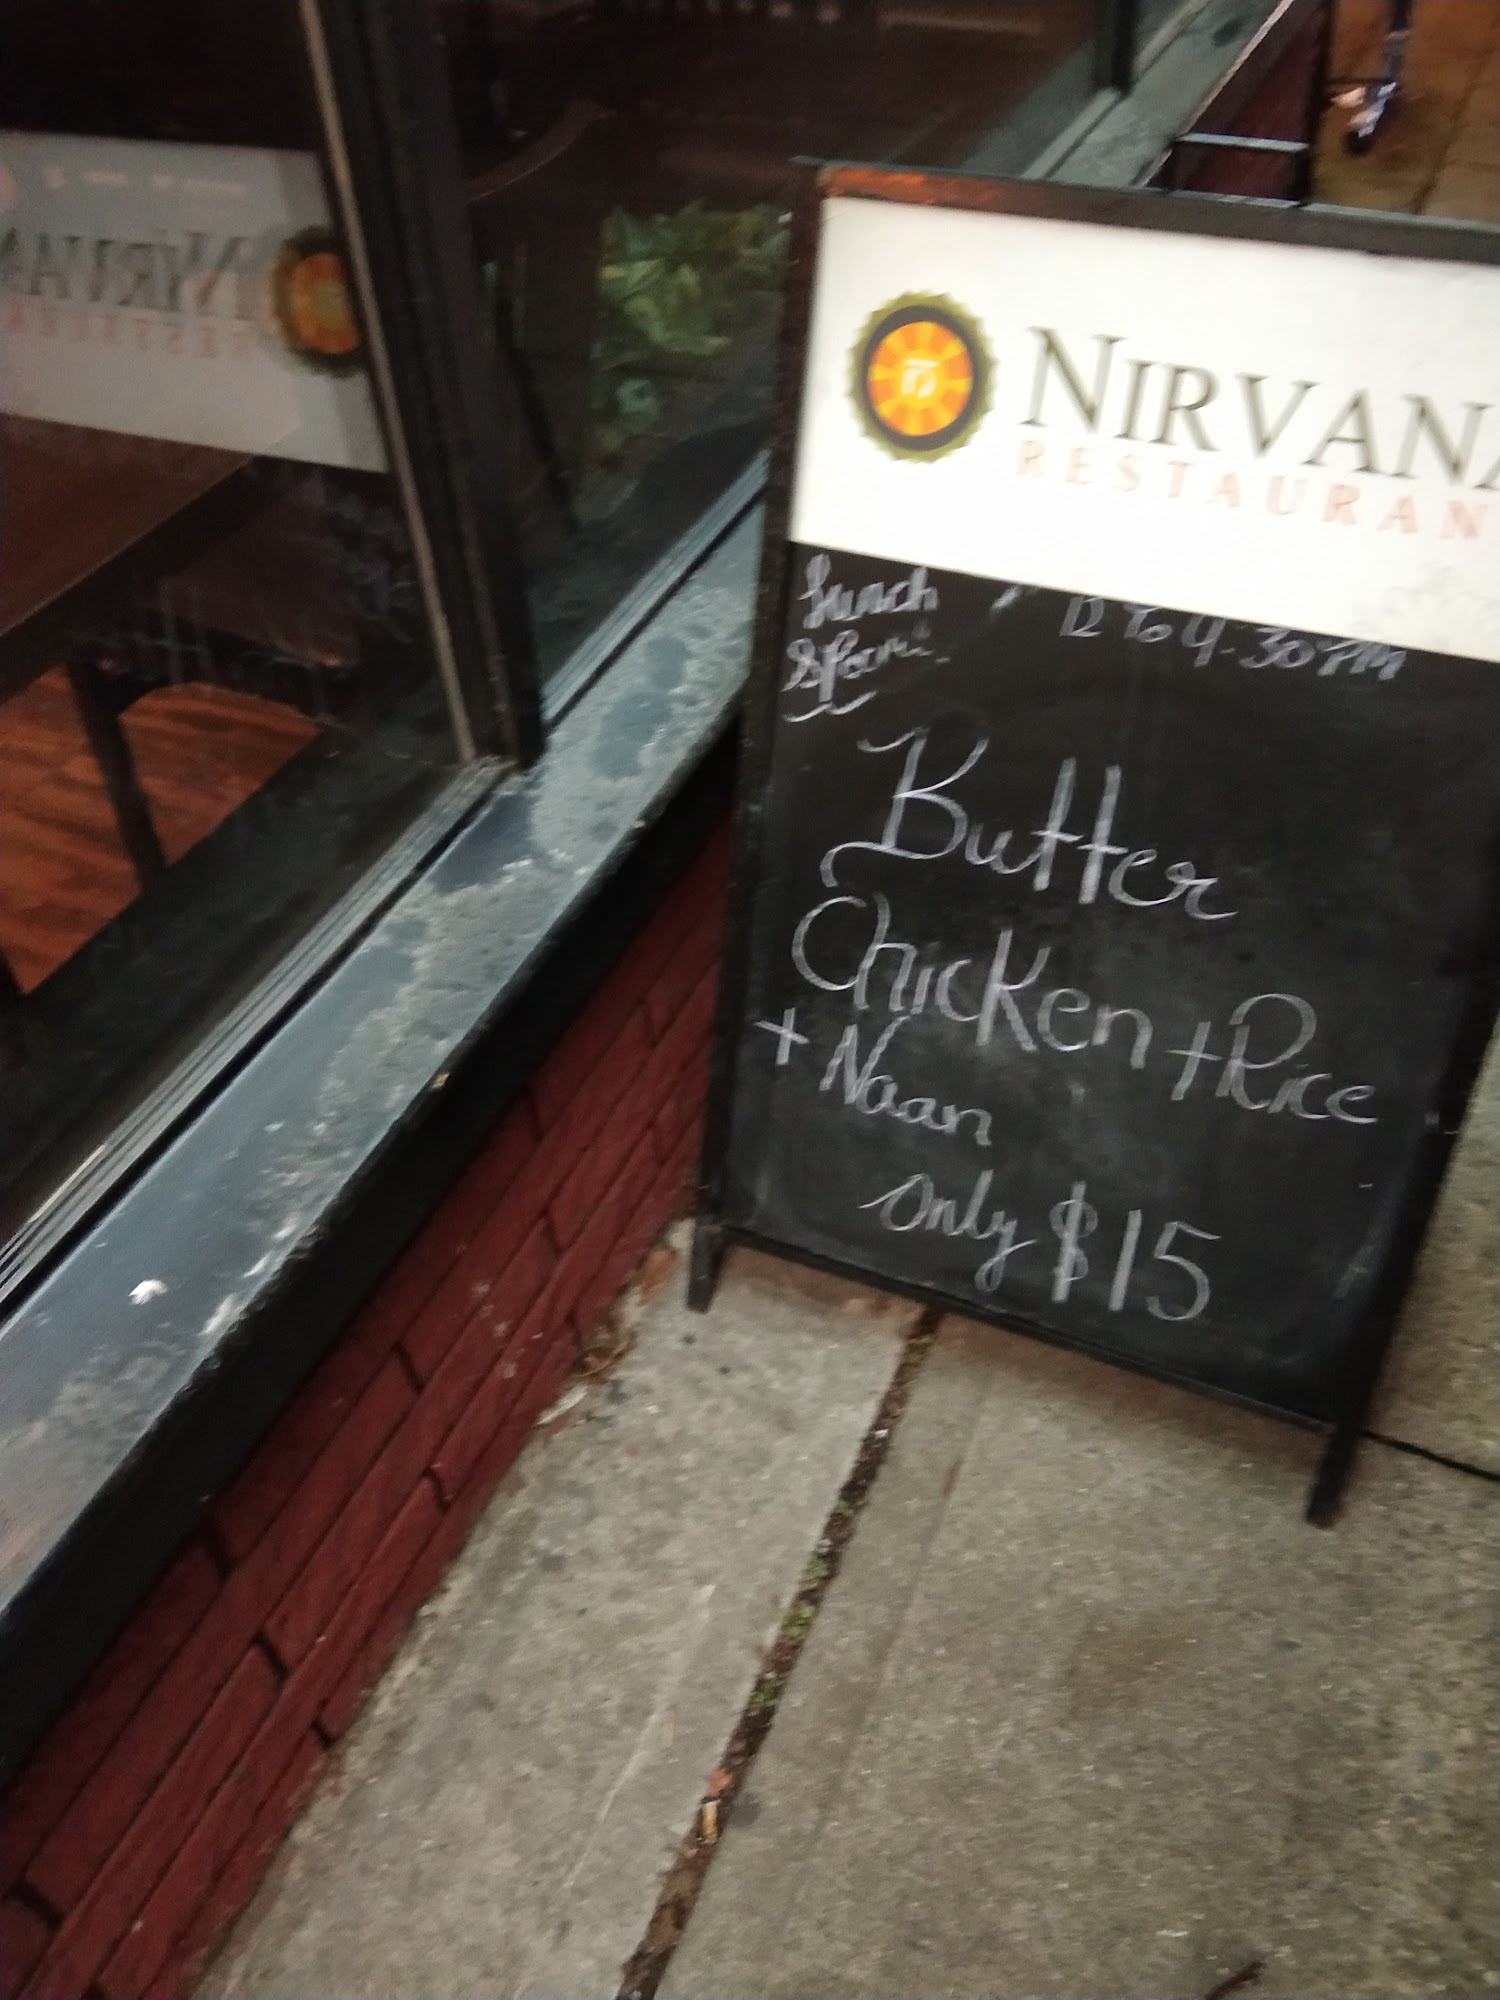 NIRVANA
RESTAURAN
Lunch 12 to 4:30 PM
Special
Butter
Chicken + Rice
+ Naan
only $15